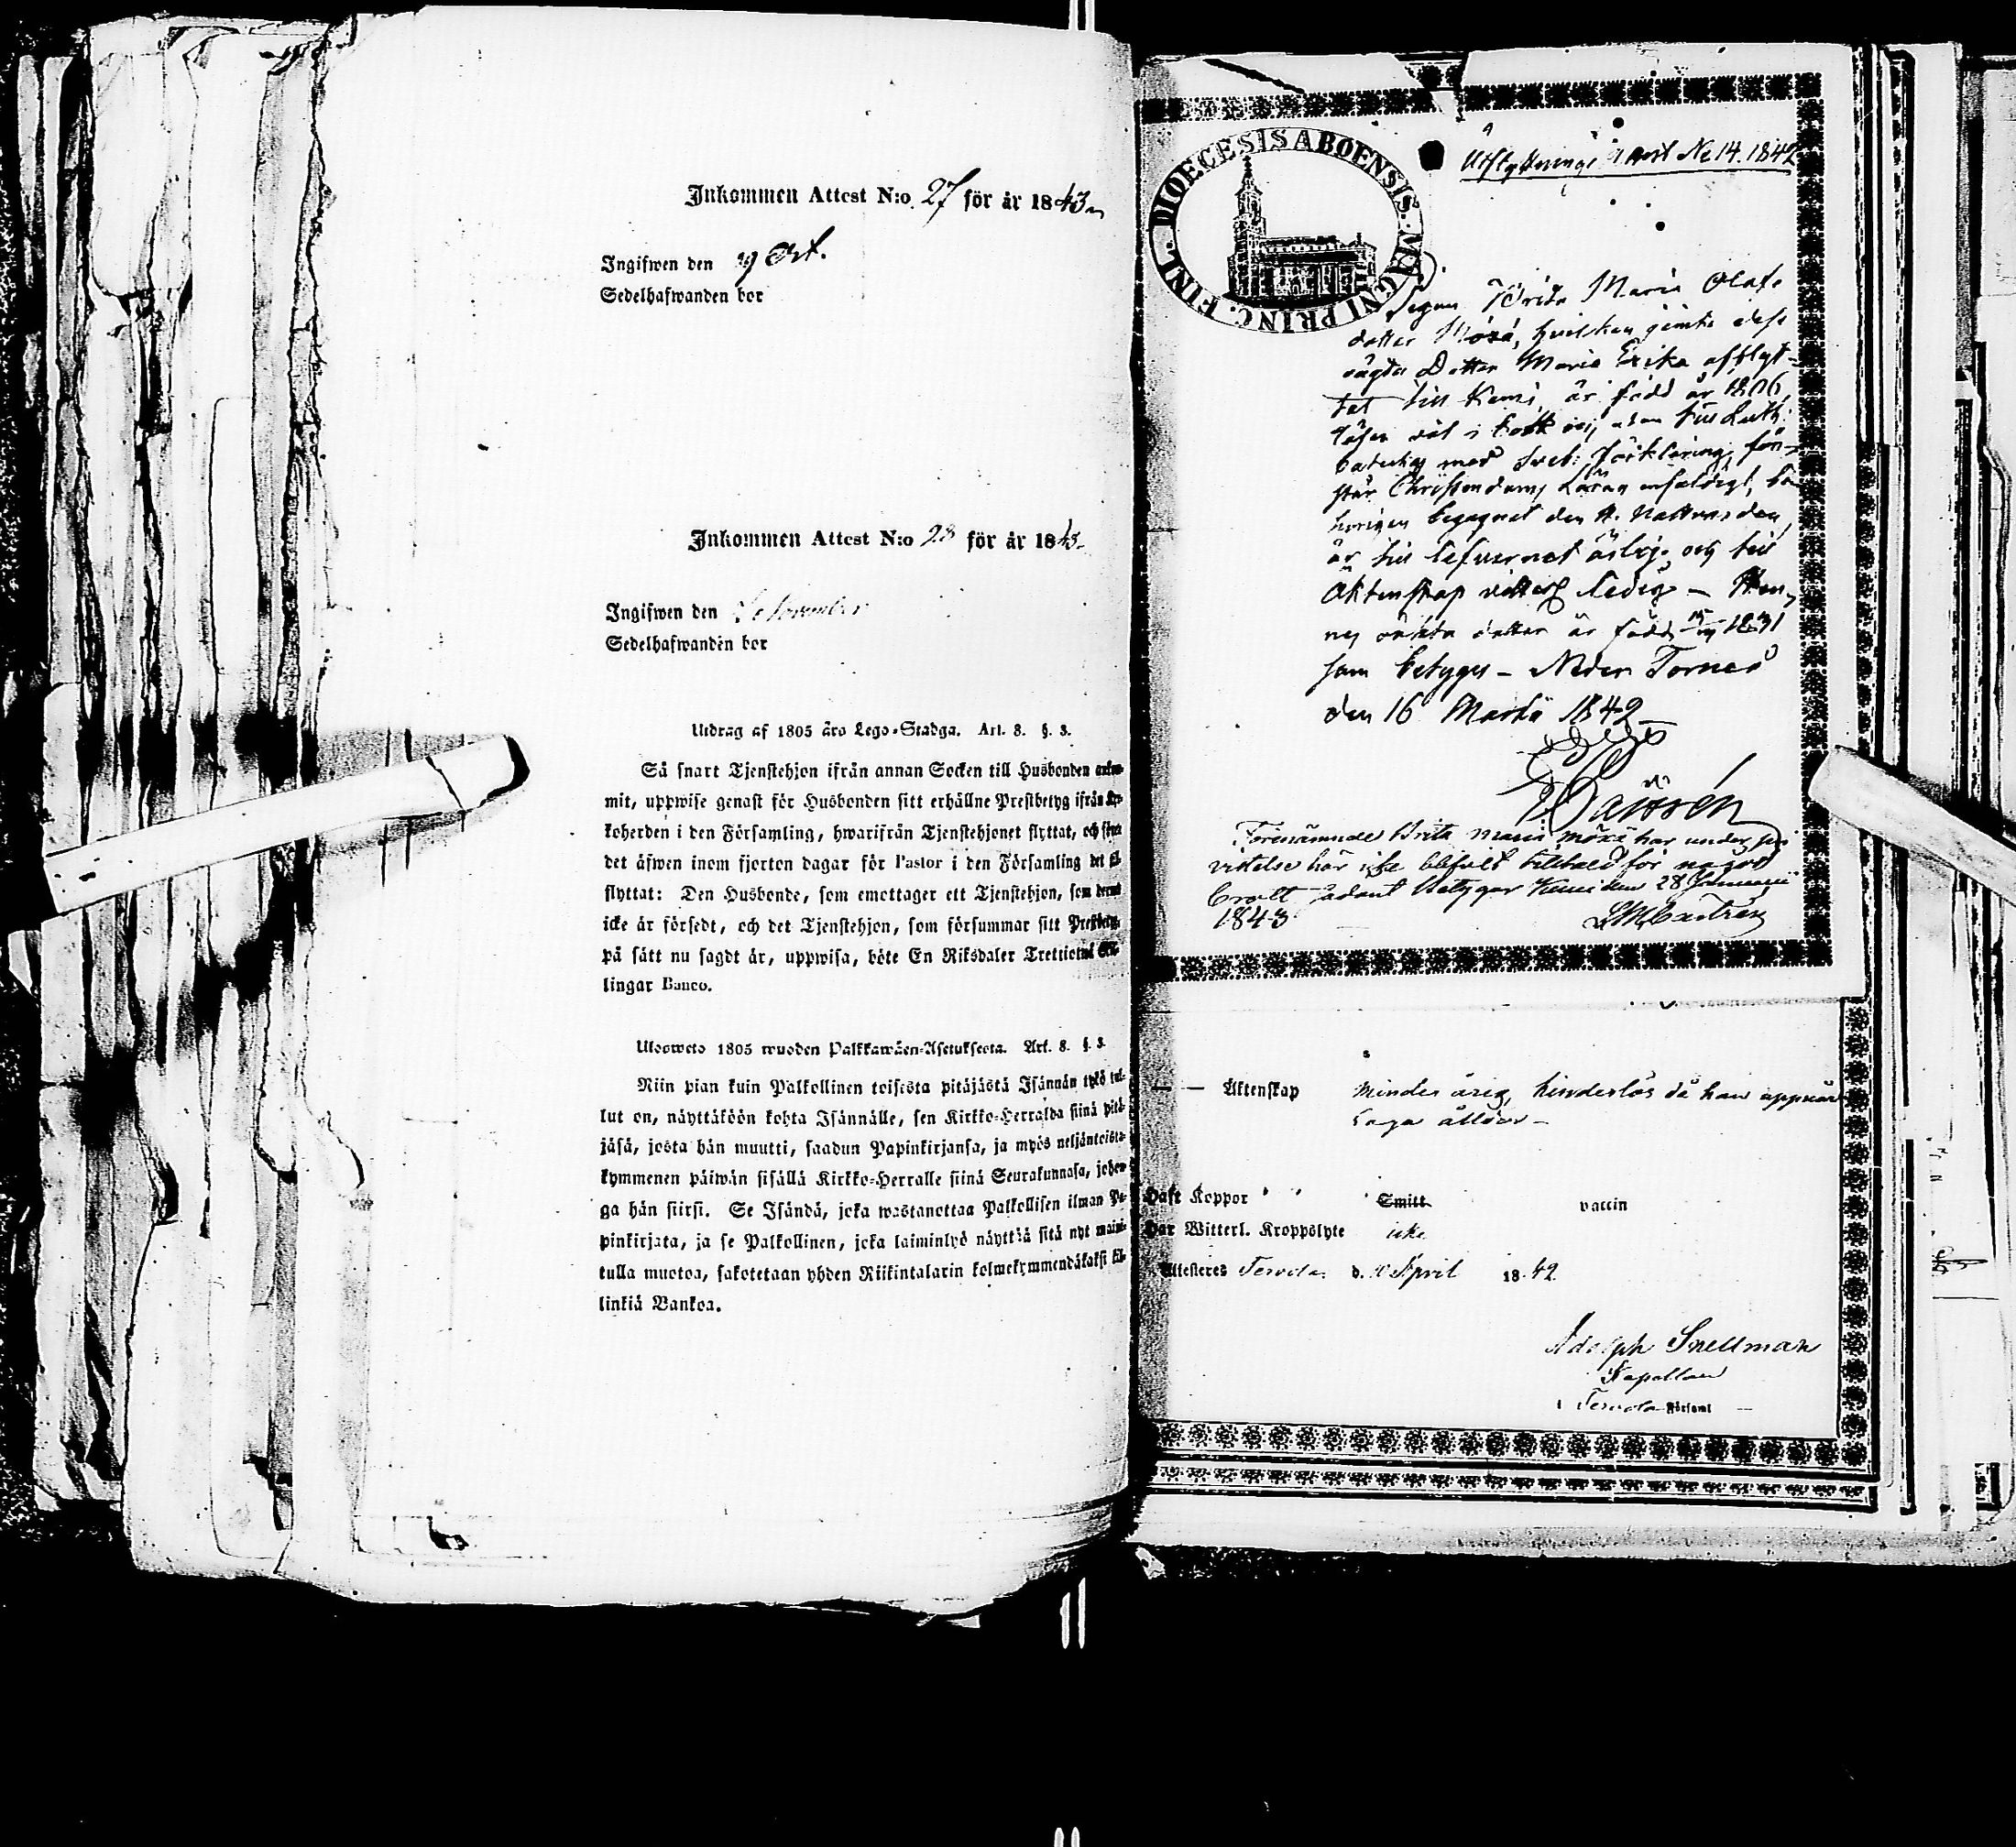 Inkommen Attest N:o 27 för år 1843
Ingifwen den 29 Oct.
Sedelhafwanden bor
Inkommen Attest N:o 28 för år 1843
Ingifwen den November
Sedelhafwanden bor
Utdrag af 1805 åra Lego-Stadga. Art. 8. §. 3.
Så snart Tjenstehjon ifrån annan Socken till Husbonden ankom-
mit, uppwise genast för Husbonden sitt erhållne Prestbetyg ifrån Kyr-
koherden i den Församling, hwarifrån Tjenstehjonet flyttat, och
det äfwen inom fjorton dagar för Pastor i den Församling det
flyttat: Den Husbonde, som emottager ett Tjenstehjon, som dermed
icke är försedt, och det Tjenstehjon, som försummar sitt Prestbetyg
på sätt nu sagdt är, uppwisa, böte En Riksdaler Trettiotwå Skil-
lingar Banco.
Uloswето 1805 wuoden Palkkawäen-Asetuksesta. Art. 8. §. 3.
Niin pian kuin Palkollinen toisesta pitäjästä Isännän työ tul-
lut on, näyttäköön kohta Isännälle, sen Kirkko-Herralda siinä pitä-
jäsä, josta hän muutti, saadun Papinkirjansa, ja myös neljäntoista-
kymmenen päiwän sisällä Kirkko-Herralle siinä Seurakunnasa, johon-
ga hän siirsi. Se Isändä, joka wastanottaa Palkollisen ilman Pa-
pinkirjata, ja se Palkollinen, joka laiminlyö näyttää sitä nyt maini-
tulla muotoa, sakotetaan yhden Riikintalarin kolmekymmendäkaksi kil-
linkiä Bankoa.
Utflyttnings Attest No 14. 1842
DIOECESIS ABOENSIS. MAGNI PRINC. FINL.
Pigan Brita Maria Olafs
dotter Möxä, hvilken jemte dess
oägta Dotter Maria Erika afflyt-
tat till Kemi, är född år 1806,
läser väl i bok och utan till Luth:
Catechis med Sveb: förklaring, för-
står Christendoms Läran enfaldigt, be-
hörigen begagnat den H. Nattvarden,
är till lefvernet ärlig, och till
Äktenskap vitterl. ledig – Hen-
nes oäkta dotter är född 1831
som betygas – Neder Torneå
den 16 Martii 1842
Förenämnde Brita Maria Möxä har under sin
vistelse här icke blifvit tilltalad för något
brott sådant betygar Kemi den 28 Januarii
1843 Castrén
Äktenskap minderårig, hinderlös då han uppnår
laga åldern –
Haft Koppor Smitt vaccin
Har Witterl. Kroppslyte icke
Attesteres Tervola d. 10 April 1842.
Adolph Snellman
Kapellan
i Tervola Församl